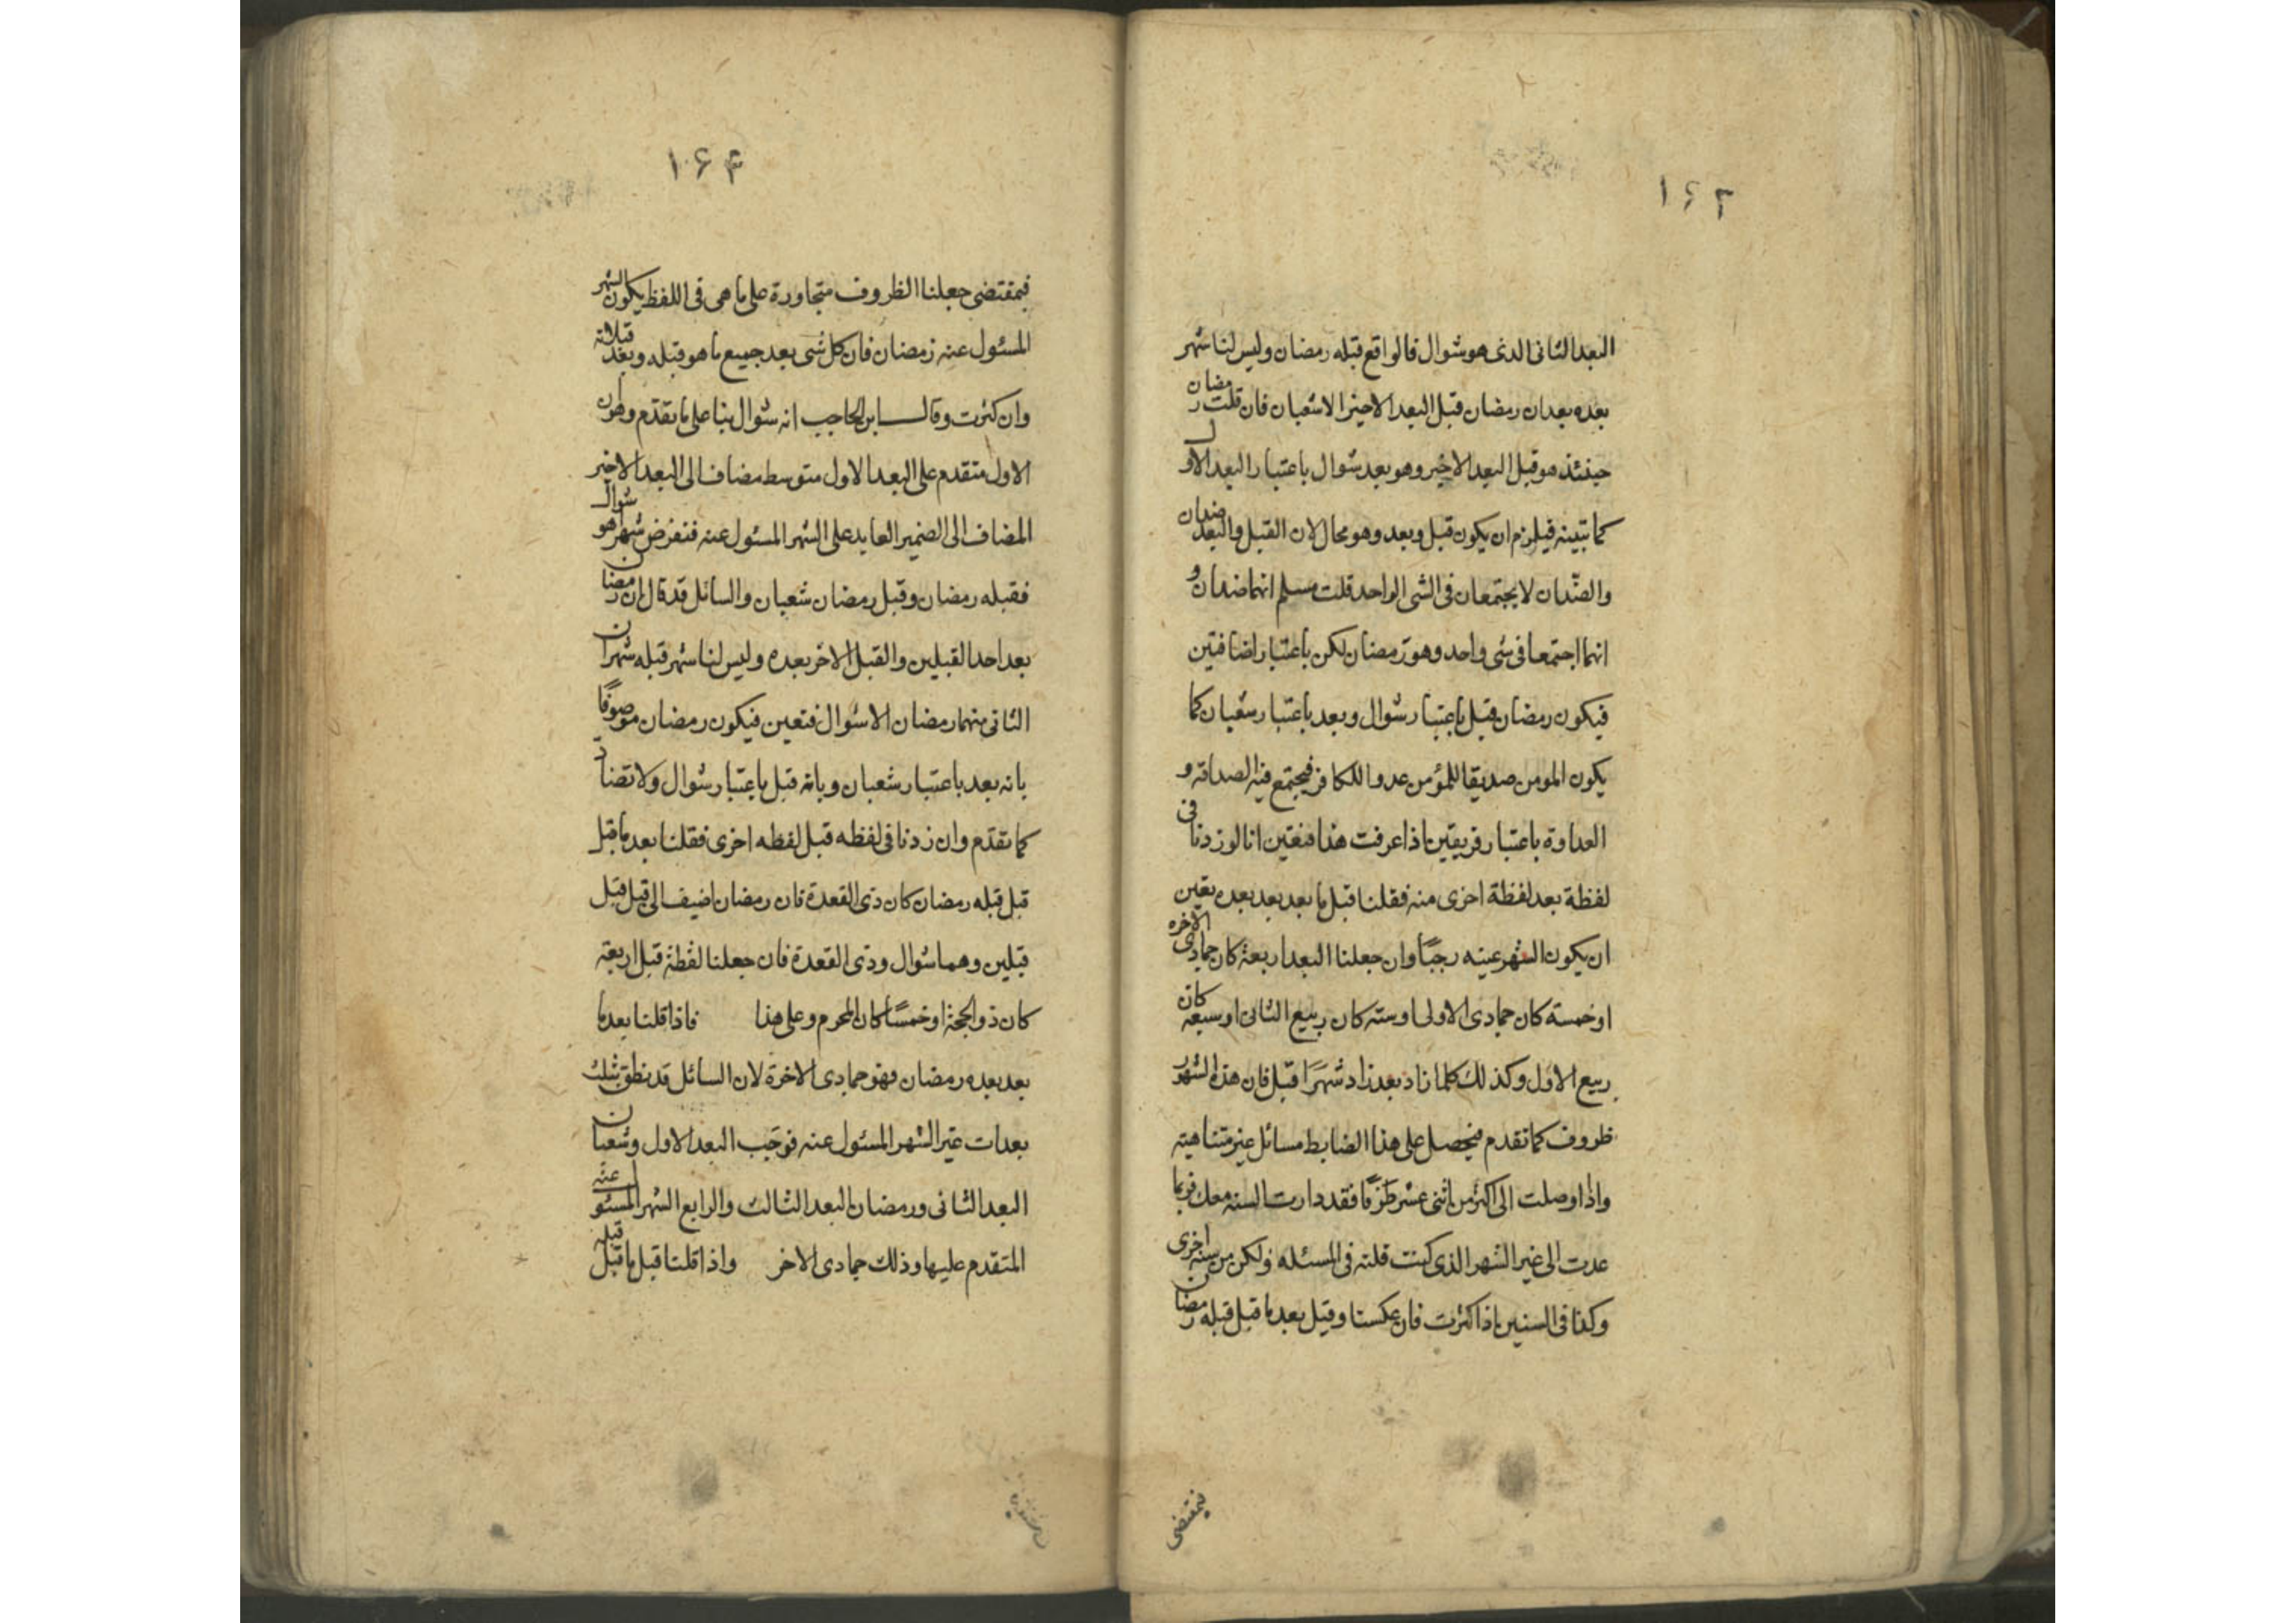 ۱۶۳
البعد الثانى الذى هو شوال فالواقع قبله رمضان وليس لنا شهر
بعده بعدان رمضان قبل البعد الاخير الا شعبان فان قلت رمضان
حينئذ هو قبل البعد الاخير وهو بعد شوال باعتبار البعد الاول
كما تبينه فيلزم ان يكون قبل وبعد وهو محال لان القبل والبعد ضدان
والضدّان لا يجتمعان فى الشى الواحد قلت مسلم انهما ضدان و
انهما اجتمعا فى شى واحد وهو رمضان لكن باعتبار اضافتين
فيكون رمضان قبل باعتبار شوال وبعد باعتبار شعبان كما
يكون المومن صديقا للمؤمن عدوا للكافر فيجتمع فيه الصداقه و
العداوة باعتبار فريقين اذا عرفت هذا فنعتين انا لو زدنا فى
لفظة بعد لفظة اخرى منه فقلنا قبل ما بعد بعد بعده يقين
ان يكون الشهر عينه رجبًا وان جعلنا البعد اربعة كان جمادى الاخره
او خمسة كان جمادى الاولى او سته كان ربيع الثانى او سبعه كان
ربيع الاول وكذلك كلما زاد بعد زاد شهرًا قبل فان هذه الشهور
ظروف كما تقدم فيحصل على هذا الضابط مسائل غير متناهيته
واذا وصلت الى اكثر من اثنى عشر ظرفًا فقد دارت السنه معك فربما
عدت الى غير الشهر الذى كنت قلته فى المسئله ولكن من سنه اخرى
وكذا فى السنين اذا كثرت فان عكسنا وقيل بعد ما قبل قبله رمضان
فبمقتضى
۱۶۴
فبمقتضى جعلنا الظروف متجاورة على ما هى فى اللفظ يكون الشهر
المسئول عنه رمضان فان كل شى بعد جميع ما هو قبله وبعد قبلاته
وان كثرت وقال ابن الحاجب انه شوال بنا على ما تقدم وهو ان
الاول متقدم على البعد الاول متوسط مضاف الى البعد الاخير
المضاف الى الضمير العايد على الشهر المسئول عنه فنفرض شهرا هو شوال
فقبله رمضان وقبل رمضان شعبان والسائل قد قال ان رمضان
بعد احد القبلين والقبل الاخر بعده وليس لنا شهر قبله شهران
الثانى منهما رمضان الا شوال فتعين فيكون رمضان موصوفًا
بانه بعد باعتبار شعبان وبانه قبل باعتبار شوال ولا تضاد
كما تقدّم وان زدنا فى لفظه قبل لفظه اخرى فقلنا بعد ما قبل
قبل قبله رمضان كان ذى القعدة فان رمضان اضيف الى قبل قبل
قبلين وهما شوال وذى القعدة فان جعلنا لفظة قبل اربعة
كان ذو الحجة او خمسًا كان المحرم وعلى هذا فاذا قلنا بعد ما
بعد بعده رمضان فهو جمادى الاخرة لان السائل قد نطق بثلث
بعدات غير الشهر المسئول عنه فوجب البعد الاول وشعبان
البعد الثانى ورمضان البعد الثالث والرابع الشهر المسئول عنه
المتقدم عليها وذلك جمادى الاخر واذا قلنا قبل ما قبل قبله